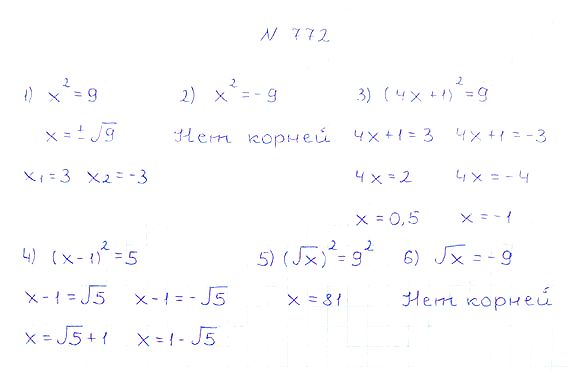 N 772
1) x² = 9
x = ± √9
x₁ = 3 x₂ = -3
2) x² = -9
Нет корней
3) (4x + 1)² = 9
4x + 1 = 3 4x + 1 = -3
4x = 2 4x = -4
x = 0,5 x = -1
4) (x - 1)² = 5
x - 1 = √5 x - 1 = -√5
x = √5 + 1 x = 1 - √5
5) (√x)² = 9²
x = 81
6) √x = -9
Нет корней